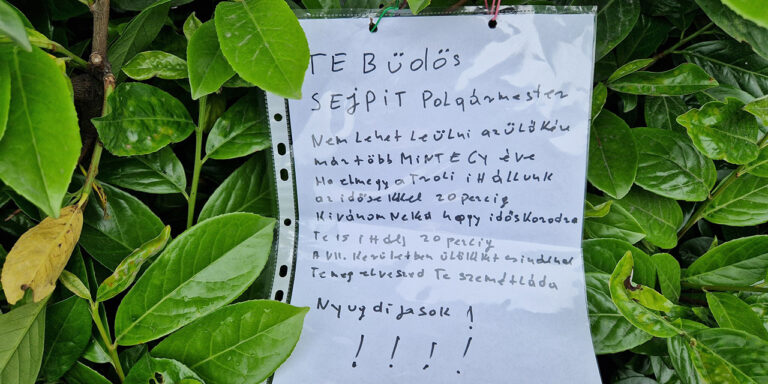 TE BüdÖs
SEJPIT Polgármester
Nem lehet leülni az ülőkére
már több MINT EGY éve
Ha elmegy a Troli itt állunk
az idősekkel 20 percig
Kivánom Neked hogy időskorodra
Te is itt állj 20 percig
A VII. Kerületben ülőkéket csinálnak
Te meg elveszed Te szemétláda
Nyugdijasok !
! ! ! !